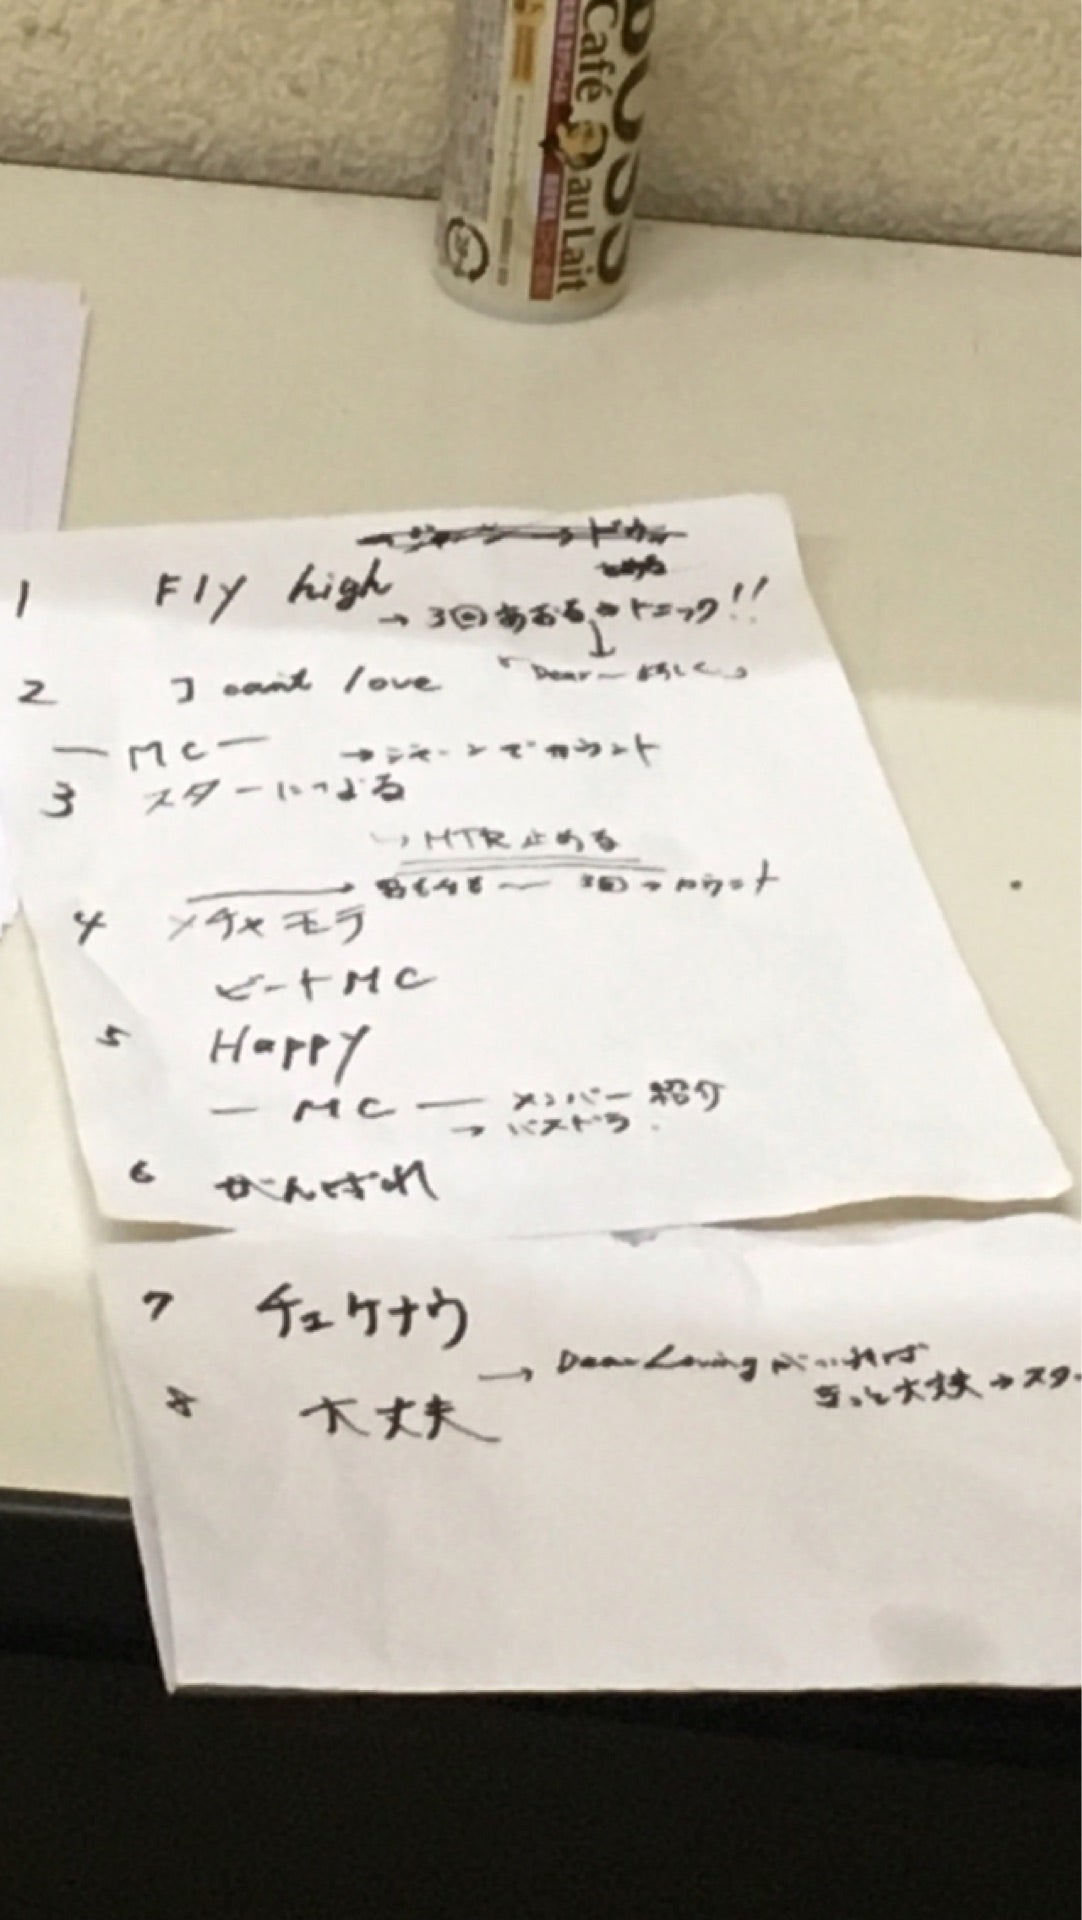 BOSS
Café au Lait
1 Fly high
→ 3回あおる→トニック!!
2 I can't love
「Dear〜よろしく」
— MC — →ジャーンでカウント
3 スターになる
↳ MTR 止める
3回→カウント
4 メチャモテ
ビートMC
5 Happy
— MC — メンバー紹介
→ バスドラ
6 がんばれ
7 チェケナウ
→ Dear Lovingがいれば
8 大丈夫
きっと大丈夫→スター